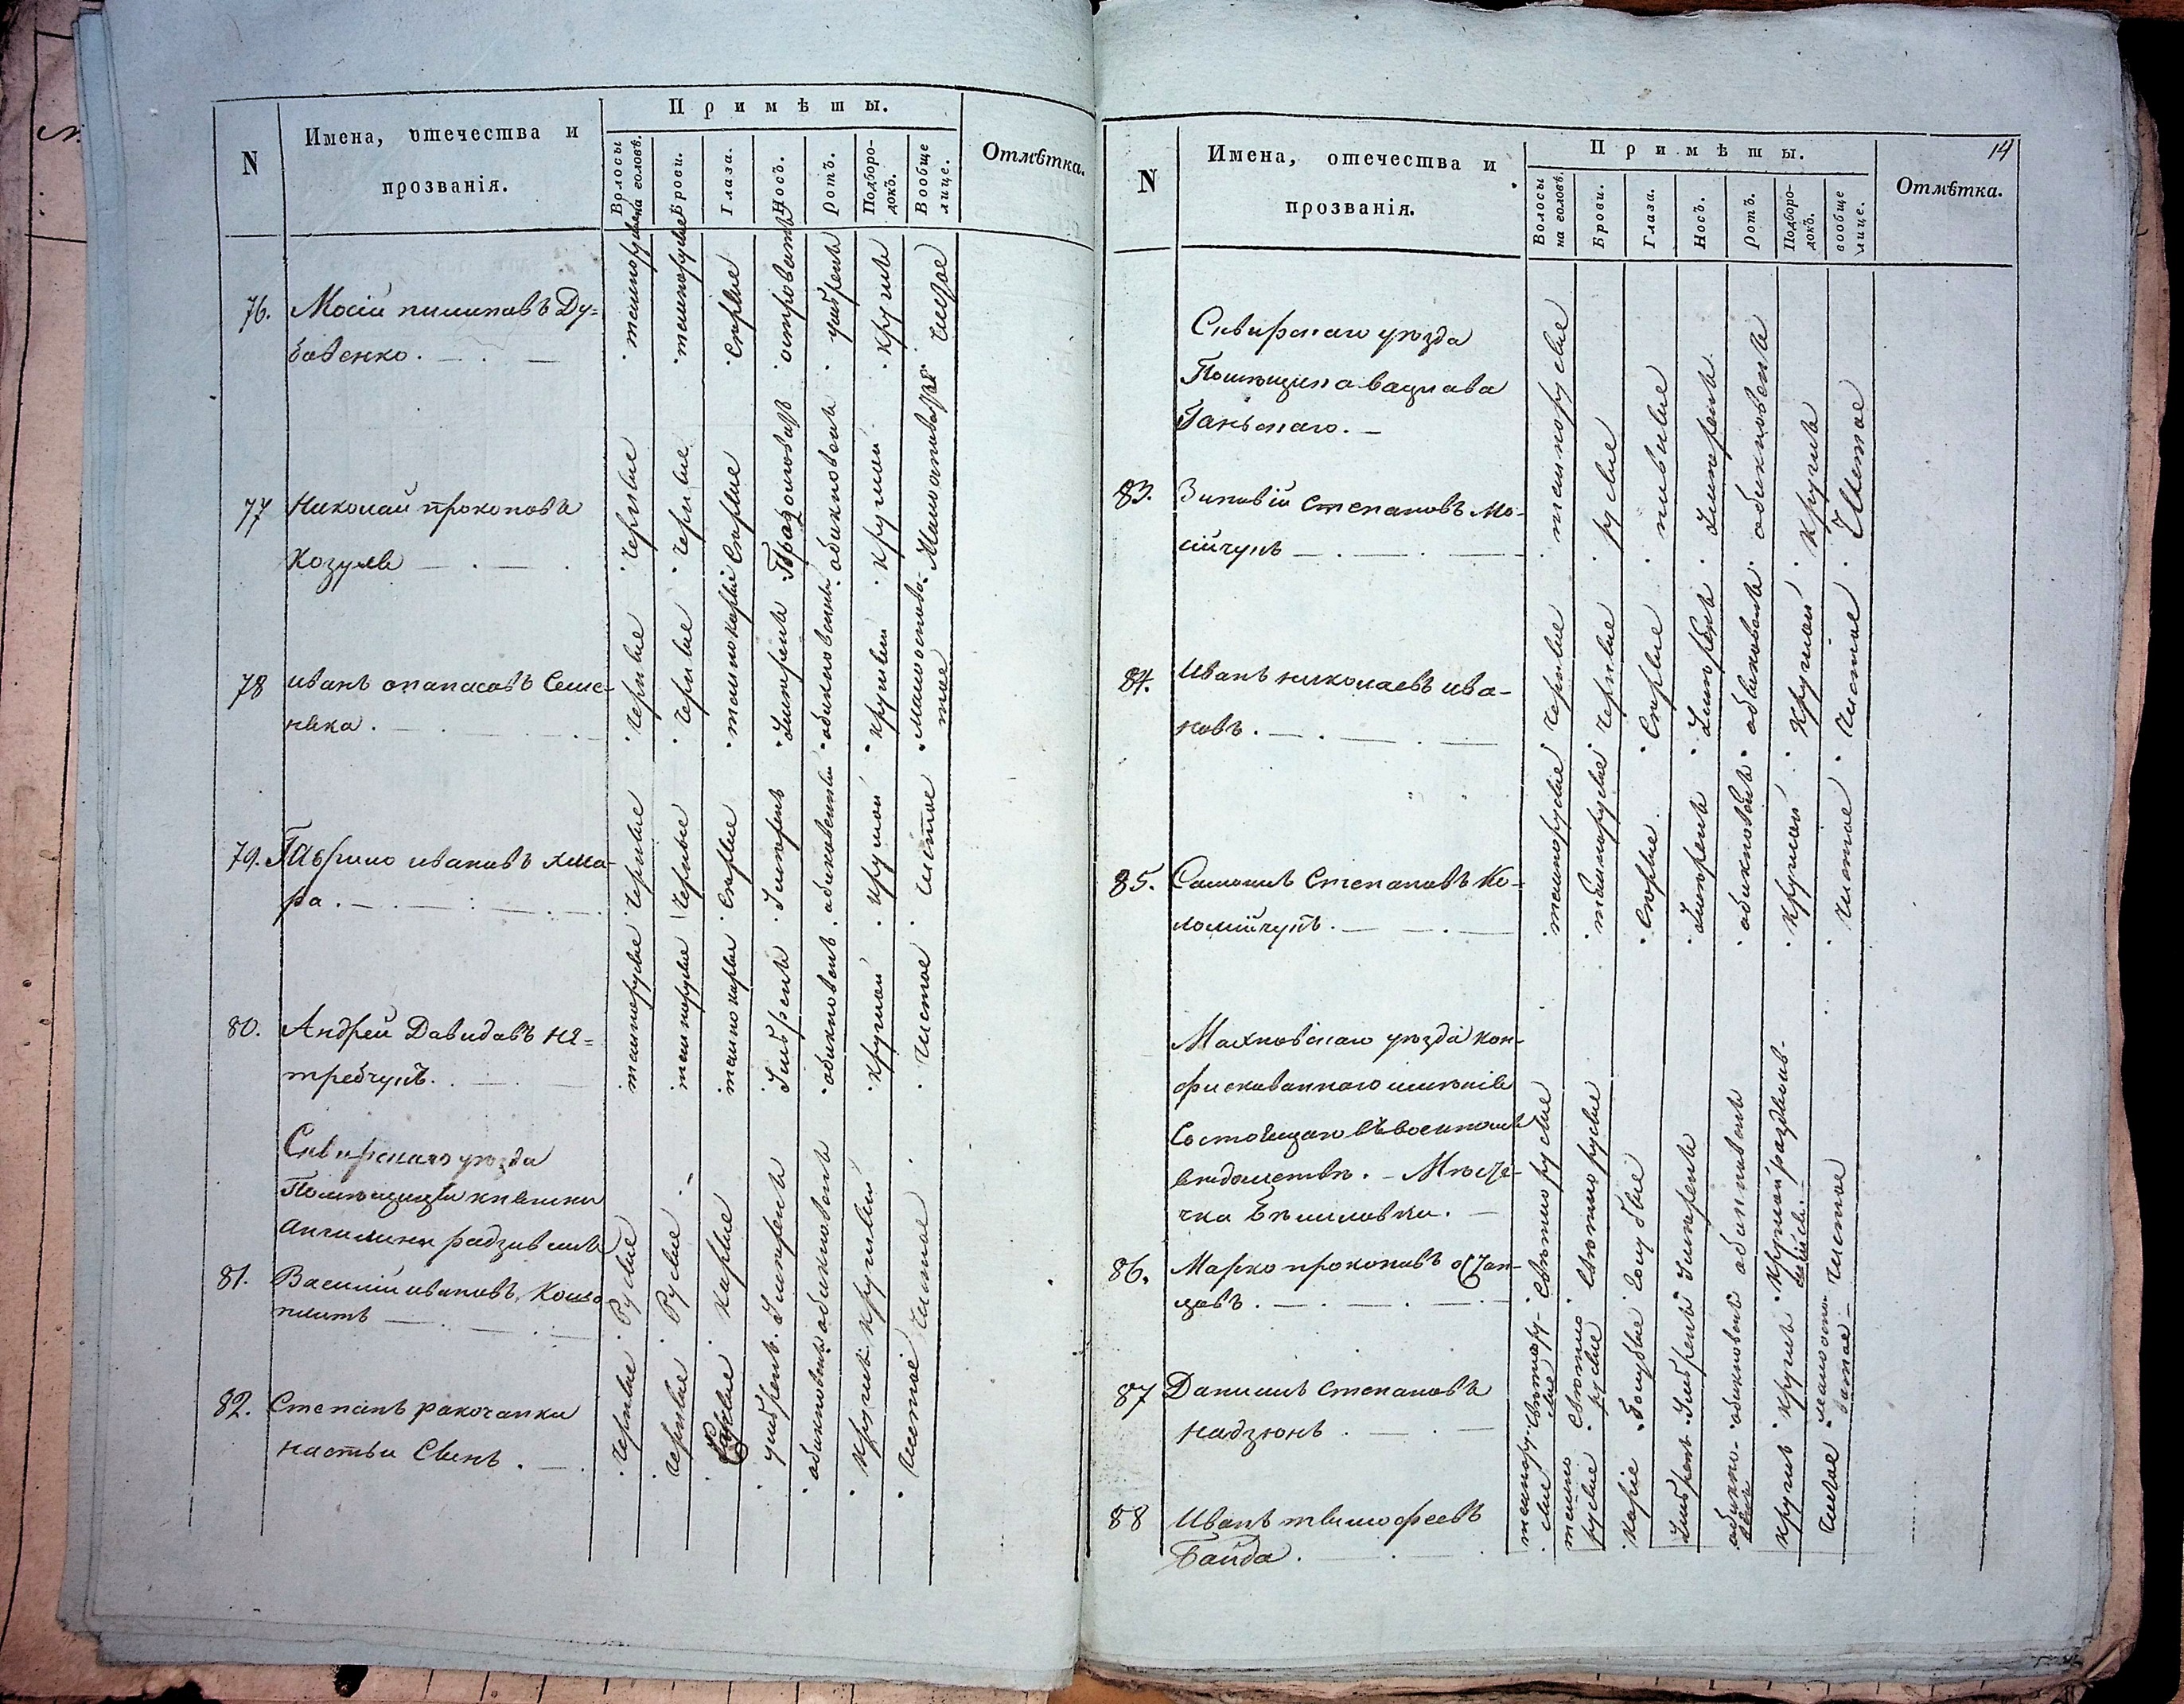 N
Имена, отечества и
прозванія.
Примѣты.
Волосы
на головѣ.
Брови.
Глаза.
Носъ.
Ротъ.
Подборо-
докъ.
Вообще
лице.
Отмѣтка.
76.
Мосій пилиповъ Ду=
бовенко.
темнорусые
темнорусые
Сѣрые
островатъ
умѣренъ
кругилъ
чистое
77
Николай прокоповъ
Козуля
черные
черные
Сѣрые
обикновенъ
круглой
78
иванъ опанасовъ Семе-
няка.
черные
черные
темнокарые
Умѣренъ
обикновенный
круглый
малооспова-
тое
79.
Гаврило ивановъ хма-
ра.
черные
черные
Сѣрые
Умѣренъ
обикновенный
круглой
чистое
80.
Андрей Давидовъ не=
требчукъ.
темнорусые
темнорусые
темнокарые
Умѣренъ
обикновенъ
круглой
чистое
Сквирскаго уезда
Помѣщицы княгини
Ангилины радзивилъ
81.
Василій ивановъ
Русые
Русые
Карые
Умѣренъ
обикновенъ
круглый
чистое
82.
Степанъ ракочанки
настьи Сынъ.
черные
черные
умѣренъ
обикновенъ
круглъ
чистое
N
Имена, отечества и
прозванія.
Примѣты.
Волосы
на головѣ.
Брови.
Глаза.
Носъ.
Ротъ.
Подборо-
докъ.
вообще
лице.
14
Отмѣтка.
Сквирскаго уѣзда
Помѣщика вацлава
Ганьскаго.
83.
Зиновій Степановъ Мо-
сійчукъ
темнорусые
русые
пивные
Умѣренъ
обикновенъ
круглъ
Чистое
84.
Иванъ николаевъ ива-
новъ.
черные
черные
Сѣрые
Умѣренъ
обикновенъ
круглой
чистое
85.
Самоилъ Степановъ Ко-
ломийчукъ.
темнорусые
темнорусые
Сѣрые
Умѣренъ
обикновенъ
круглой
чистое
Махновскаго уѣзда кон-
фискованнаго имѣнія
Состоящаго въ военномъ
вѣдомствѣ. – Мѣсте-
чка Бѣлиловки.
86.
Марко прокоповъ
свѣтлорусые
свѣтлорусые
голубые
Умѣренъ
обикновенъ
круглой раздвоив-
шійся.
чистое
87
Данилъ степановъ
надзюнъ
свѣтлору-
сые
свѣтло
русые
голубые
Умѣренъ
обикновенъ
круглъ
малооспо-
ватое
88
Иванъ тимофеевъ
Байда.
темнору-
сые
темно
русые
Каріе
Умѣренъ
обикно-
венъ
круглъ
чистое